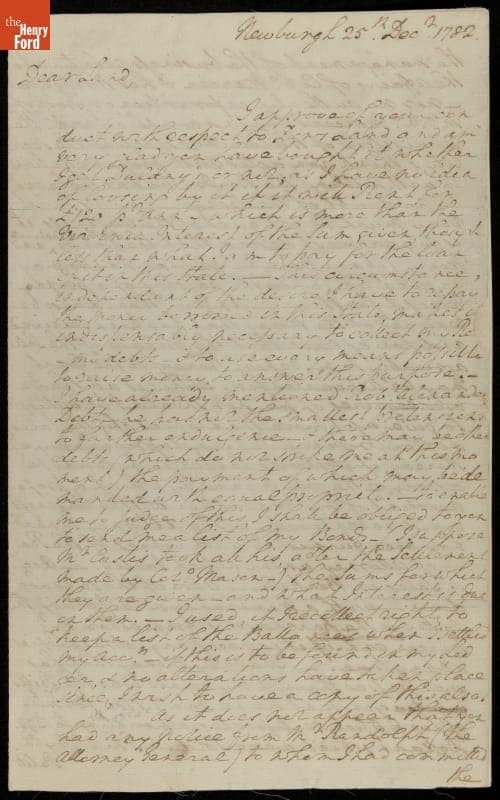 the
Henry
Ford
Newburgh 25th. Decr. 1782.
Dear Lund,
I approve of your con
duct with respect to Land and am
very glad you have bought it whether
I get or not; as I have no idea
of losing by it if it will Rent for
£120 pr. Ann which is more than the
Interest of the Sum given though
less than what I am to pay for the loan
in this State. — This circumstance,
independent of the desire I have to repay
the money borrowed in this State, makes it
indispensably necessary to collect my
debts & to use every means possible
to raise money to answer this purpose. —
I have already mentioned Robt. Alexanders
Debt — he has not the smallest pretensions
to further indulgence — there may be other
debts (which do not strike me at this mo
ment) the payment of which may be de
manded with equal propriety. — to enable
me to judge of this I shall be obliged to you
to send me a list of my Bonds — (I suppose
Mr. Custis took all his after the Settlement
made by Colo. Mason —) the Sums for which
they are given — and what Interest is due
on them. — I used, if I recollect right, to
keep a list of the Ballances when I settled
my Accts. — if this is to be found in my led
ger, & no alterations have taken place
since, I wish to have a copy of this also.
As it does not appear that you
had any from Mr. Randolph (the
Attorney General) to whom I had committed
the